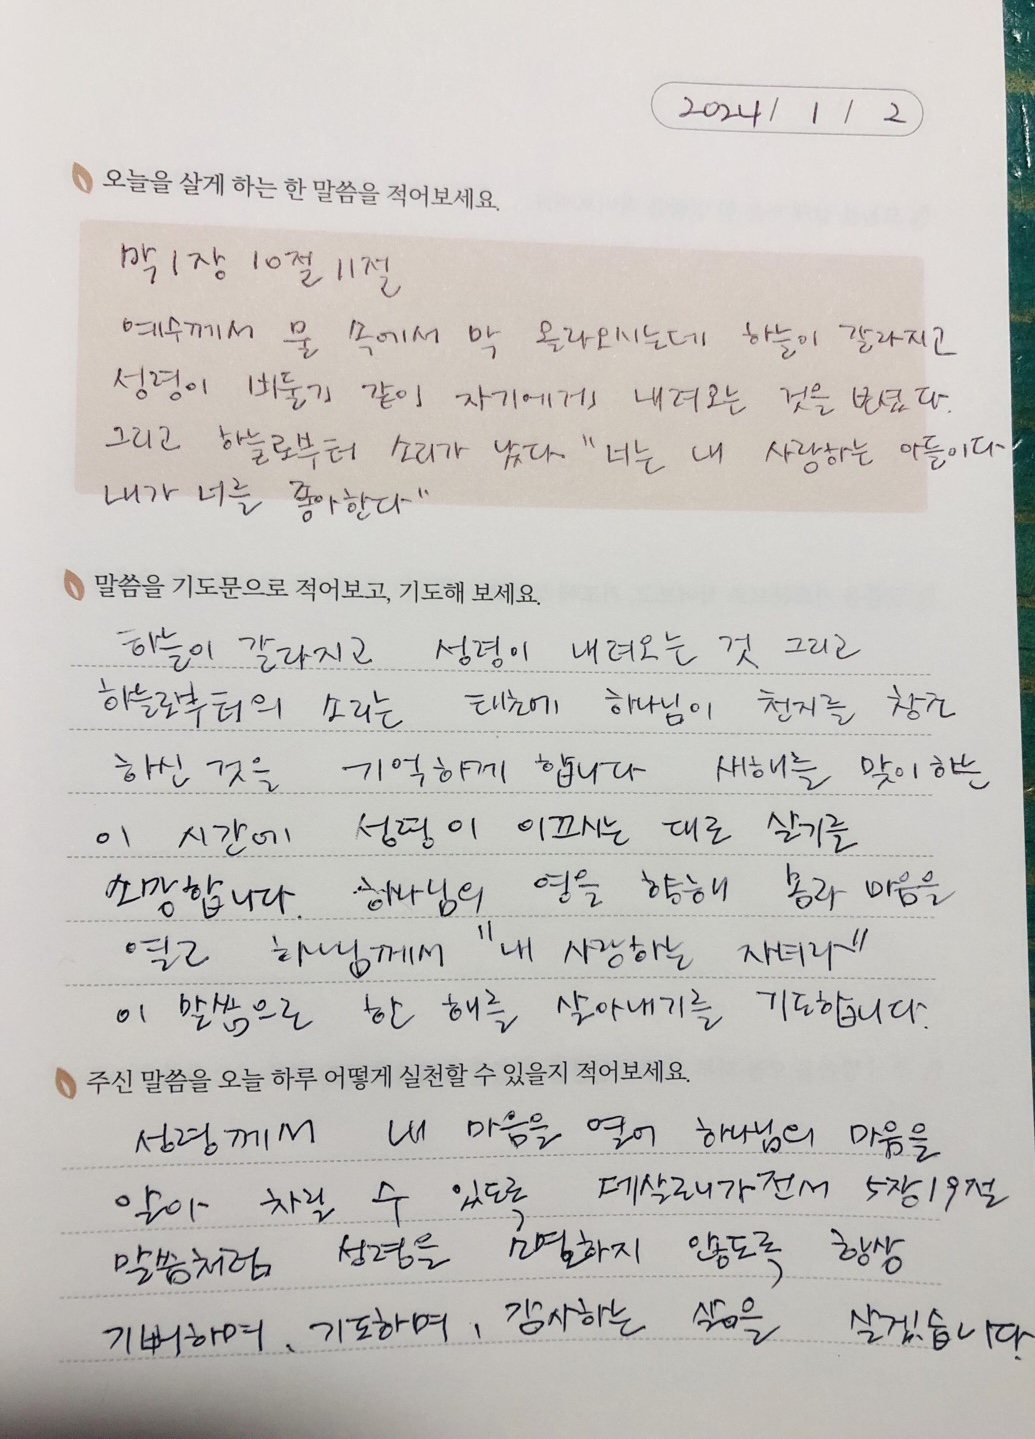 2024 / 1 / 2
오늘을 살게 하는 한 말씀을 적어보세요.
막 1장 10절 11절
예수께서 물 속에서 막 올라오시는데 하늘이 갈라지고
성령이 비둘기 같이 자기에게 내려오는 것을 보셨다.
그리고 하늘로부터 소리가 났다 "너는 내 사랑하는 아들이다
내가 너를 좋아한다"
말씀을 기도문으로 적어보고, 기도해 보세요.
하늘이 갈라지고 성령이 내려오는 것 그리고
하늘로부터의 소리는 태초에 하나님이 천지를 창조
하신 것을 기억하게 합니다 새해를 맞이하는
이 시간에 성령이 이끄시는 대로 살기를
소망합니다. 하나님의 영을 향해 몸과 마음을
열고 하나님께서 "내 사랑하는 자녀라"
이 말씀으로 한 해를 살아내기를 기도합니다.
주신 말씀을 오늘 하루 어떻게 실천할 수 있을지 적어보세요.
성령께서 내 마음을 열어 하나님의 마음을
알아 차릴 수 있도록 데살로니가전서 5장19절
말씀처럼 성령을 소멸하지 않도록 항상
기뻐하며, 기도하며, 감사하는 삶을 살겠습니다.